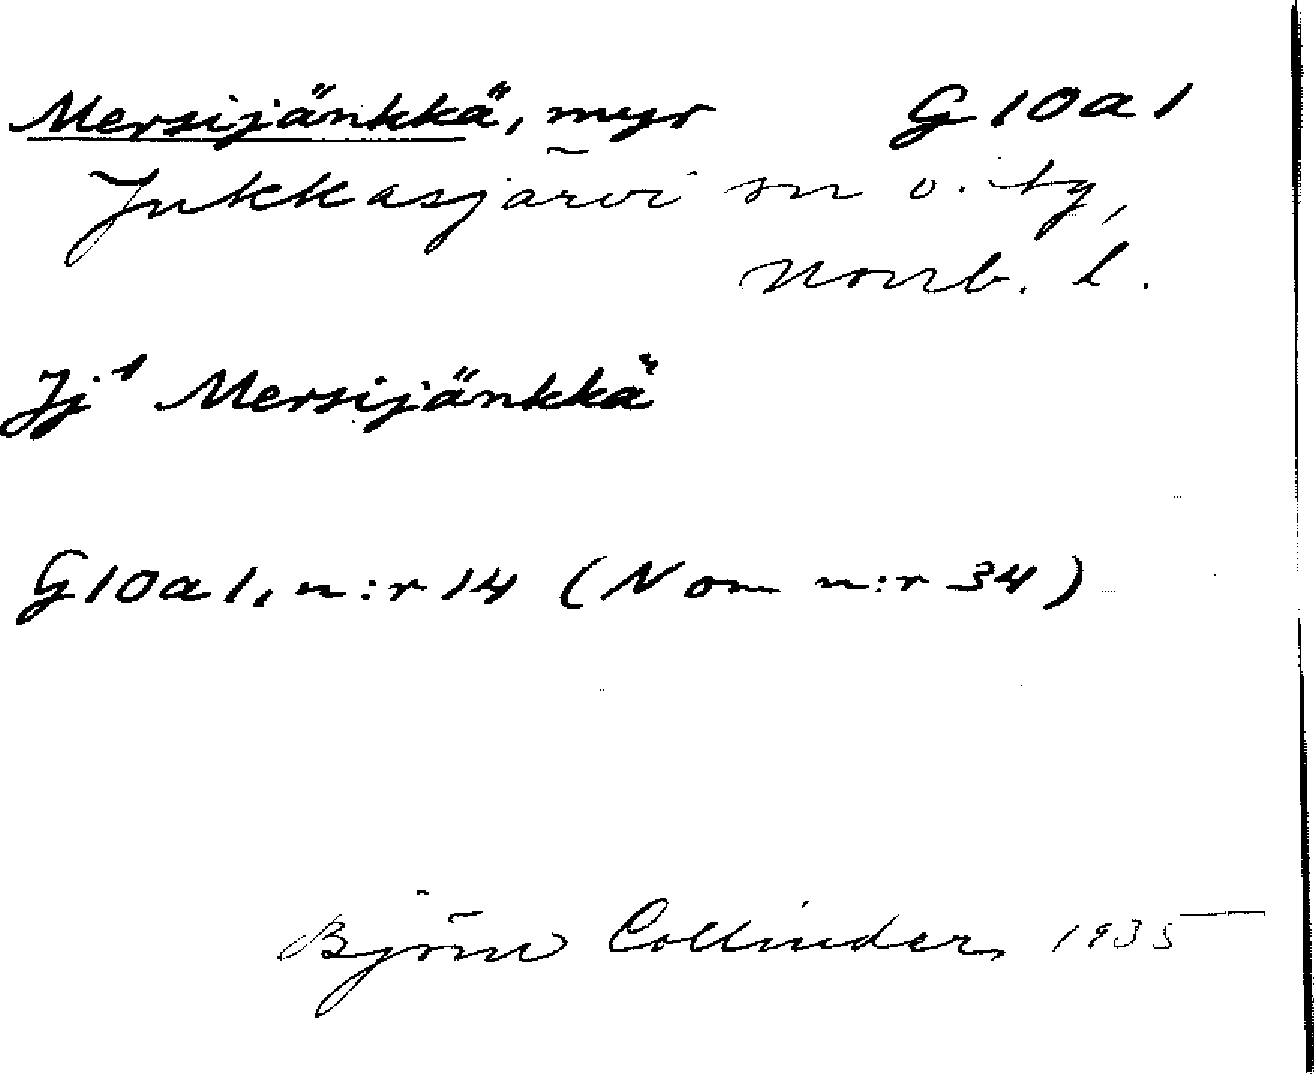 Mersijänkkä, myr G10a1
Jukkasjärvi sn o. tg,
Norrb. l.
Jj¹ Mersijänkkä
G10a1, n:r 14 (Nom n:r 34)
Björn Collinder, 1935